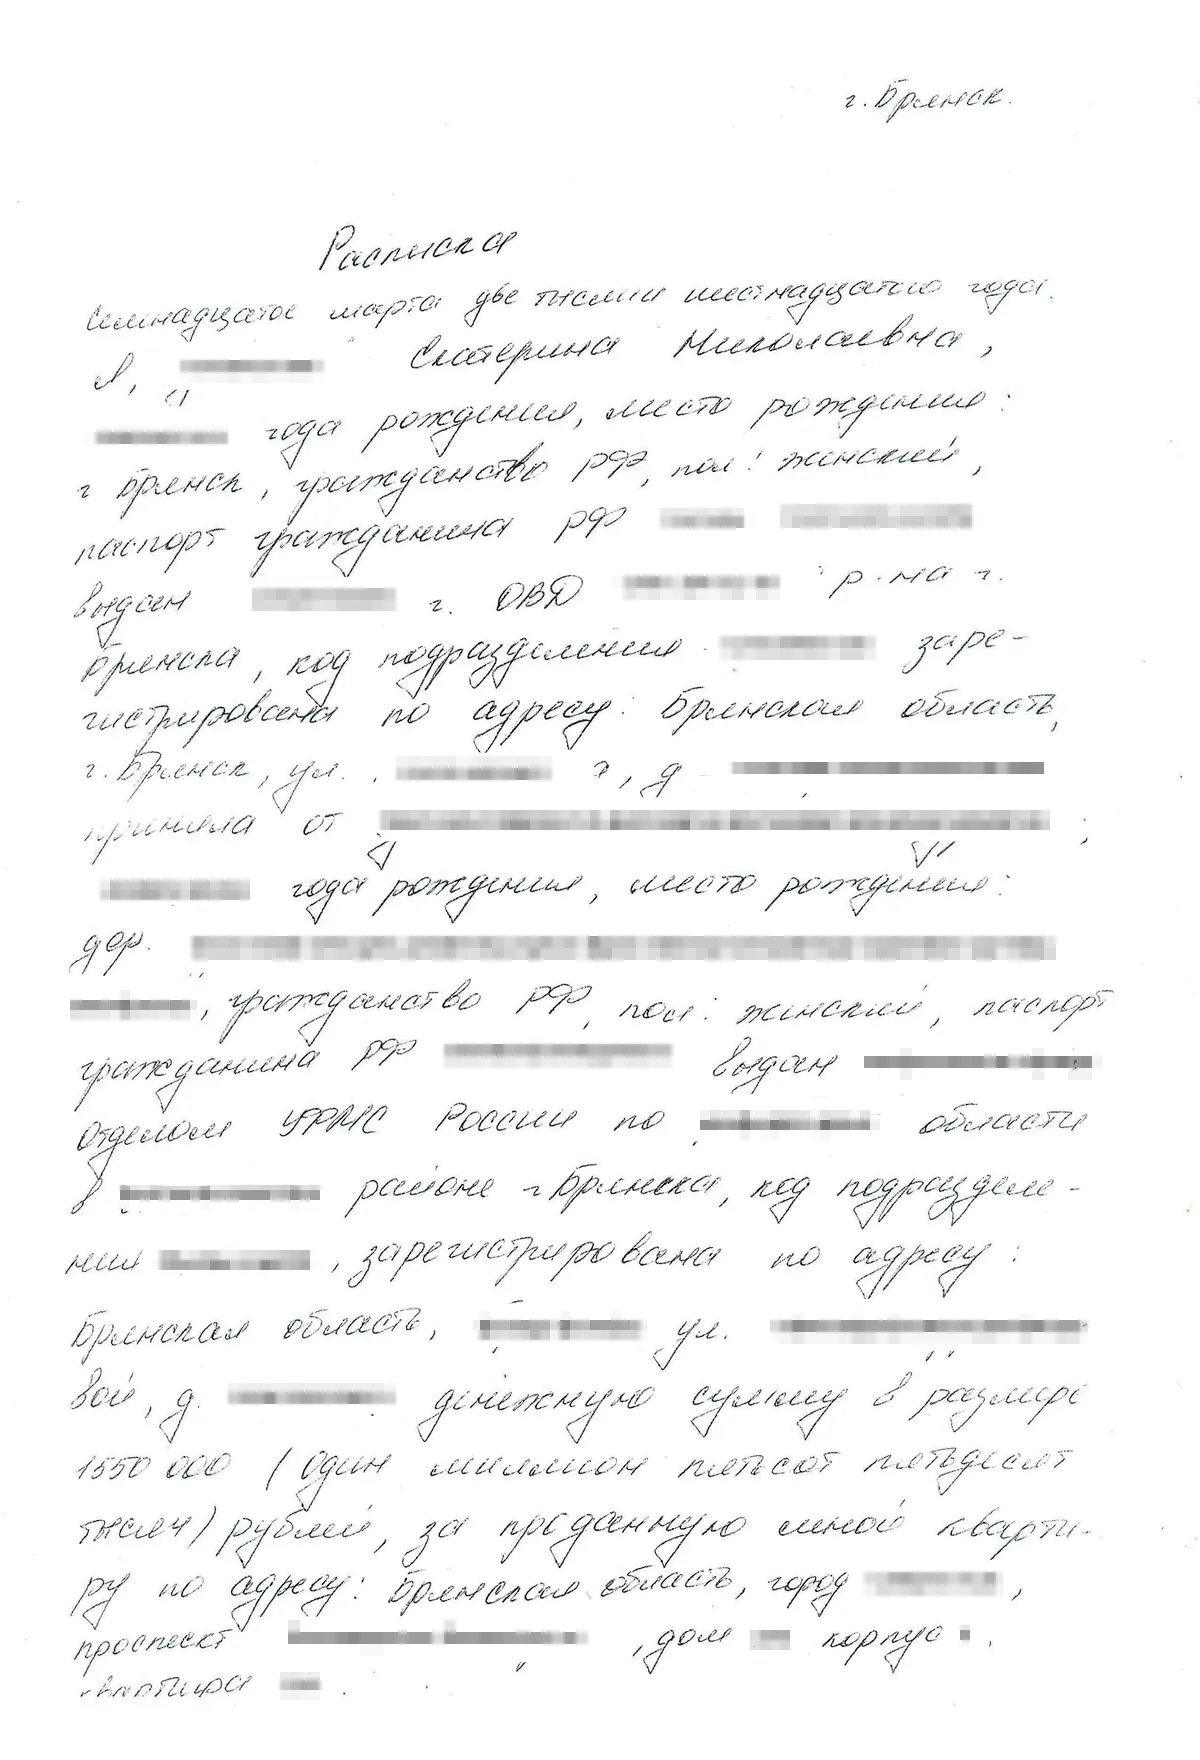 г. Брянск.
Расписка
Семнадцатое марта две тысячи шестнадцатого года.
Я, Екатерина Николаевна,
года рождения, место рождения:
г Брянск, гражданство РФ, пол: женский,
паспорт гражданина РФ
выдан г. ОВД р-на г.
Брянска, код подразделения заре-
гистрирована по адресу: Брянская область,
г. Брянск, ул. , д
приняла от ,
года рождения, место рождения:
дер.
, гражданство РФ, пол: женский, паспорт
гражданина РФ выдан
Отделом УФМС России по области
в районе г Брянска, код подразделе-
ния , зарегистрирована по адресу:
Брянская область, ул.
вой, д. денежную сумму в размере
1550 000 (Один миллион пятьсот пятьдесят
тысяч) рублей, за проданную мной кварти-
ру по адресу: Брянская область, город ,
проспект , дом корпус ,
квартира .